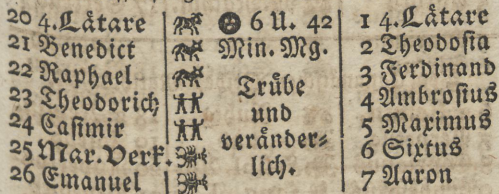 20 4. Lätare 6 U. 42 1 4. Lätare
21 Benedict Min. Mg. 2 Theodosia
22 Raphael Trübe 3 Ferdinand
23 Theodorich und 4 Ambrosius
24 Casimir veränder= 5 Maximus
25 Mar. Verk. lich. 6 Sixtus
26 Emanuel 7 Aaron